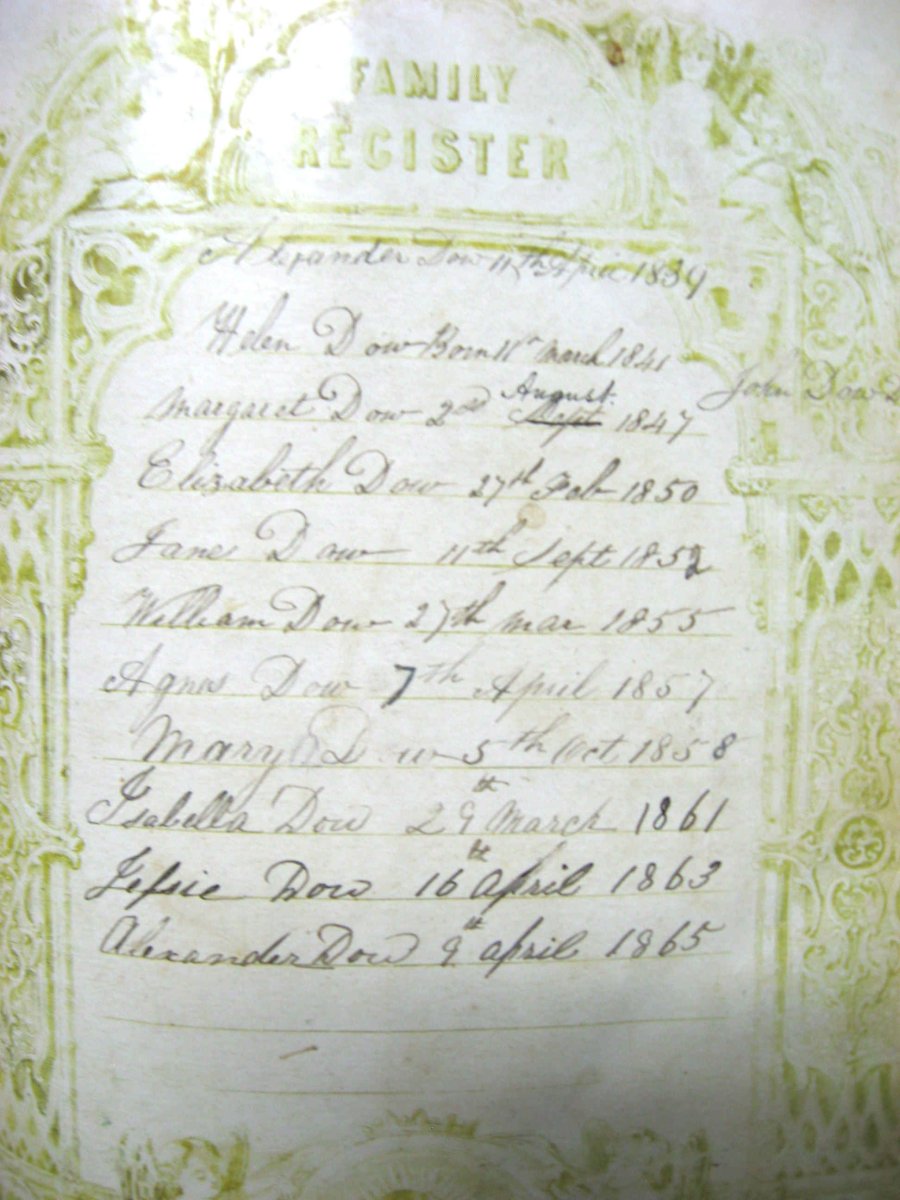 FAMILY
REGISTER
Alexander Dow 11th April 1839
Helen Dow Born 11th March 1841
John Dow
August.
Margaret Dow 2nd Sept 1847
Elizabeth Dow 27th Feb 1850
Jane Dow 11th Sept 1852
William Dow 27th Mar 1855
Agnes Dow 7th April 1857
Mary Dow 5th Oct 1858
Isabella Dow 29th March 1861
Jessie Dow 16th April 1863
Alexander Dow 9th April 1865